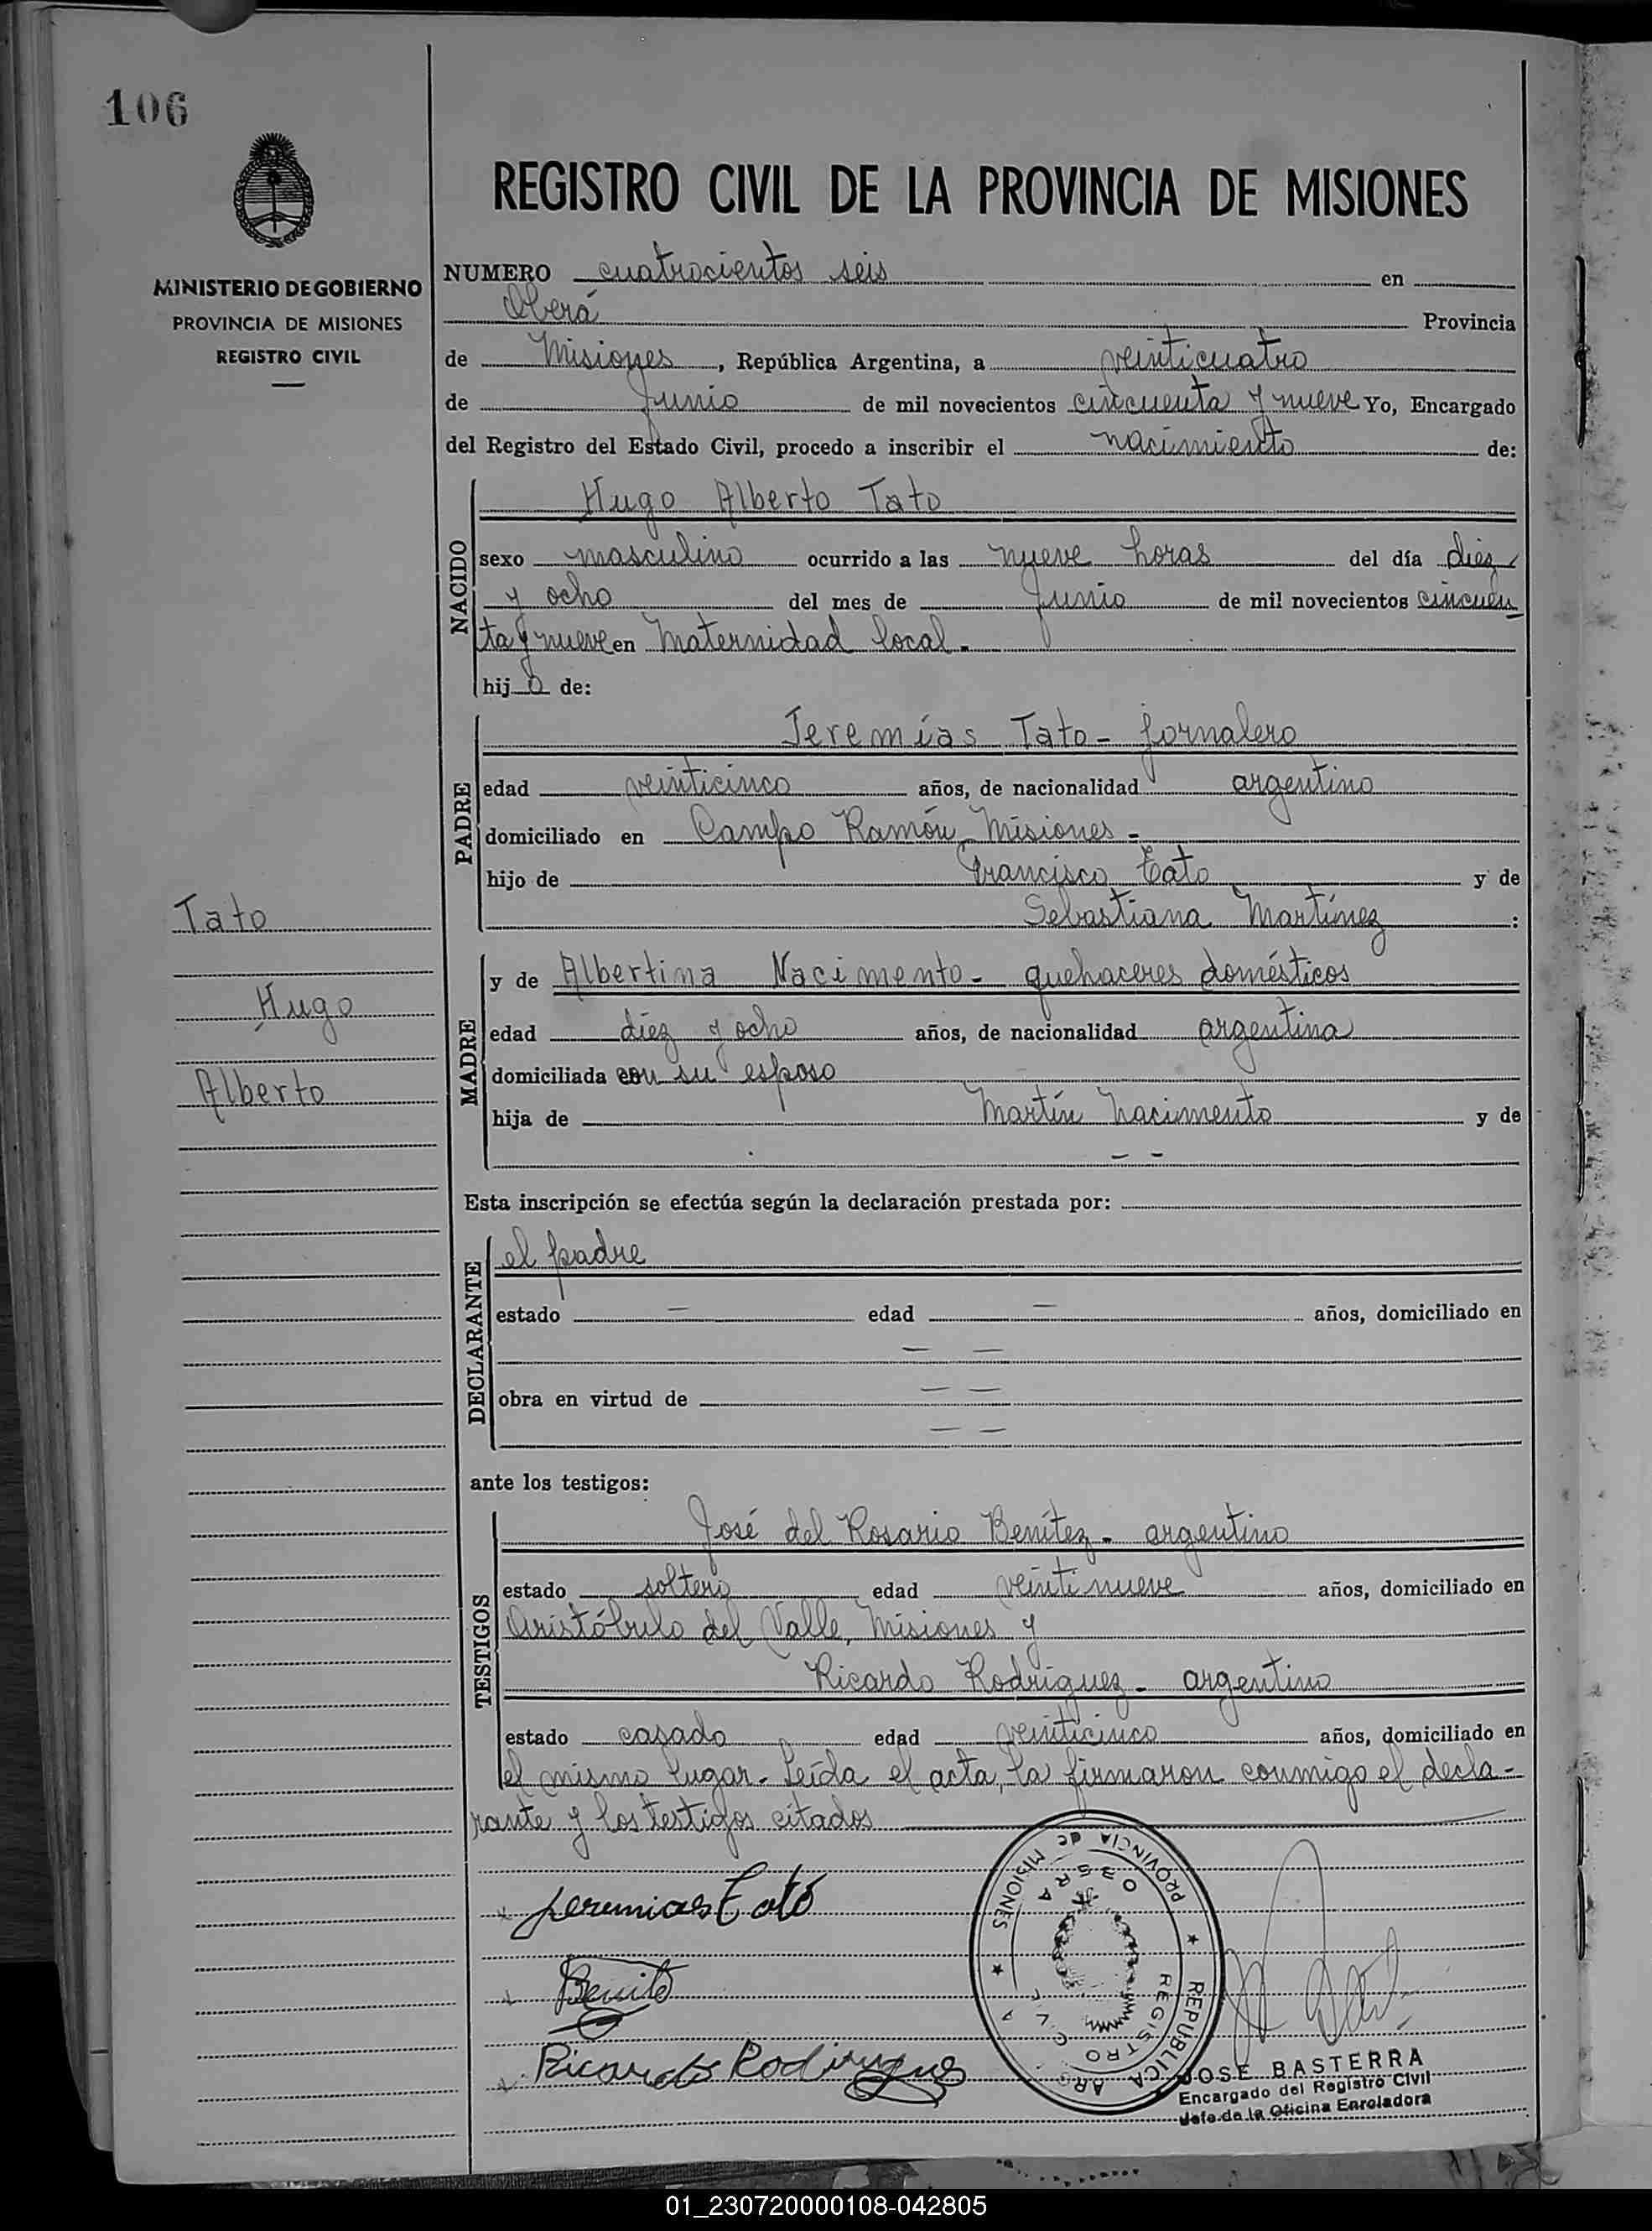 106
MINISTERIO DE GOBIERNO
PROVINCIA DE MISIONES
REGISTRO CIVIL
Tato
Hugo
Alberto
REGISTRO CIVIL DE LA PROVINCIA DE MISIONES
NUMERO cuatrocientos seis en
Oberá Provincia
de Misiones, República Argentina, a veinticuatro
de Junio de mil novecientos cincuenta y nueve Yo, Encargado
del Registro del Estado Civil, procedo a inscribir el nacimiento de:
NACIDO
Hugo Alberto Tato
sexo masculino ocurrido a las nueve horas del día diez
y ocho del mes de Junio de mil novecientos cincuen
ta y nueve en Maternidad local.
hijo de:
PADRE
Jeremías Tato - jornalero
edad veinticinco años, de nacionalidad argentino
domiciliado en Campo Ramón, Misiones -
hijo de Francisco Tato y de
Sebastiana Martínez :
MADRE
y de Albertina Nacimento - quehaceres domésticos
edad diez y ocho años, de nacionalidad argentina
domiciliada con su esposo
hija de Martín Nacimento y de
- -
Esta inscripción se efectúa según la declaración prestada por:
DECLARANTE
el padre
estado — edad — años, domiciliado en
— —
obra en virtud de — —
— —
ante los testigos:
TESTIGOS
José del Rosario Benítez - argentino
estado soltero edad veintinueve años, domiciliado en
Aristóbulo del Valle, Misiones y
Ricardo Rodríguez - argentino
estado casado edad veinticinco años, domiciliado en
el mismo lugar. Leída el acta, la firmaron conmigo el decla-
rante y los testigos citados
Jeremias Tató
Benite
Ricardo Rodriguez
PROVINCIA de MISIONES ★ REPUBLICA ARGA ★
REGISTRO CIVIL OBERA
JOSE BASTERRA
Encargado del Registro Civil
Jefe de la Oficina Enroladora
01_230720000108-042805